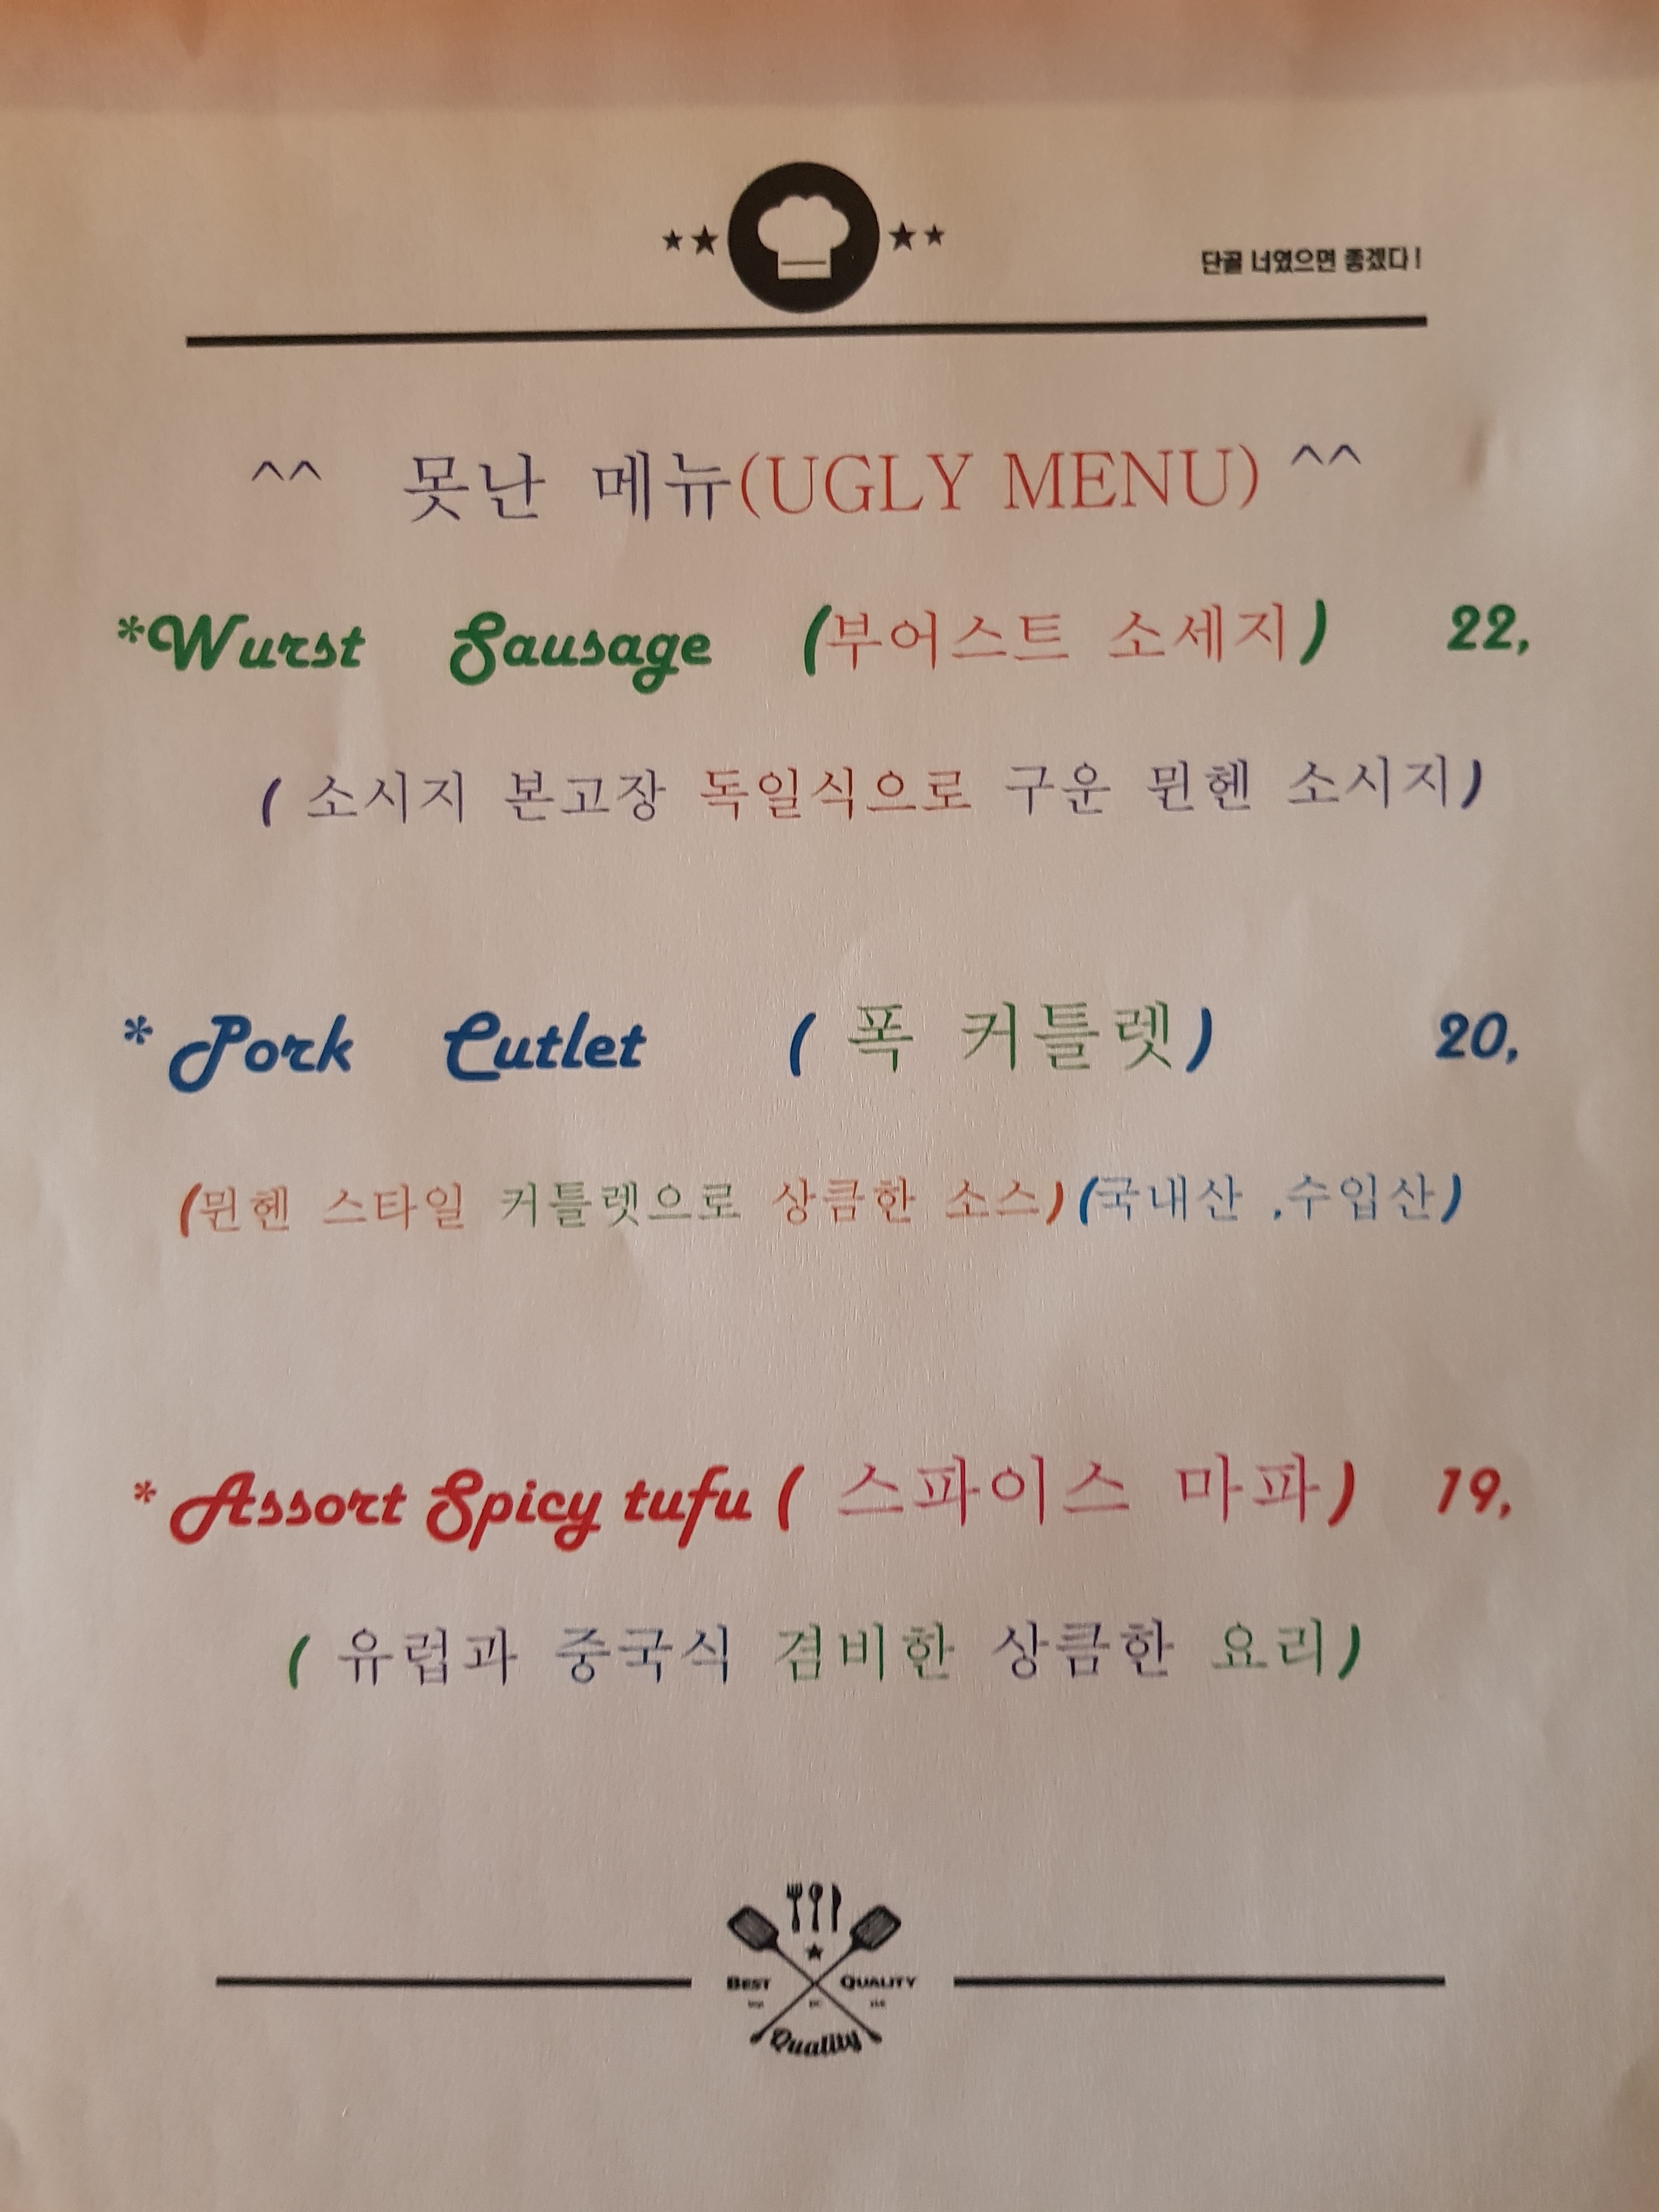 단골 너였으면 좋겠다!
^^ 못난 메뉴(UGLY MENU) ^^
*Wurst Sausage (부어스트 소세지) 22,
( 소시지 본고장 독일식으로 구운 뮌헨 소시지)
* Pork Cutlet ( 폭 커틀렛) 20,
(뮌헨 스타일 커틀렛으로 상큼한 소스)(국내산 ,수입산)
* Assort Spicy tufu ( 스파이스 마파) 19,
( 유럽과 중국식 겸비한 상큼한 요리)
BEST QUALITY
Quality